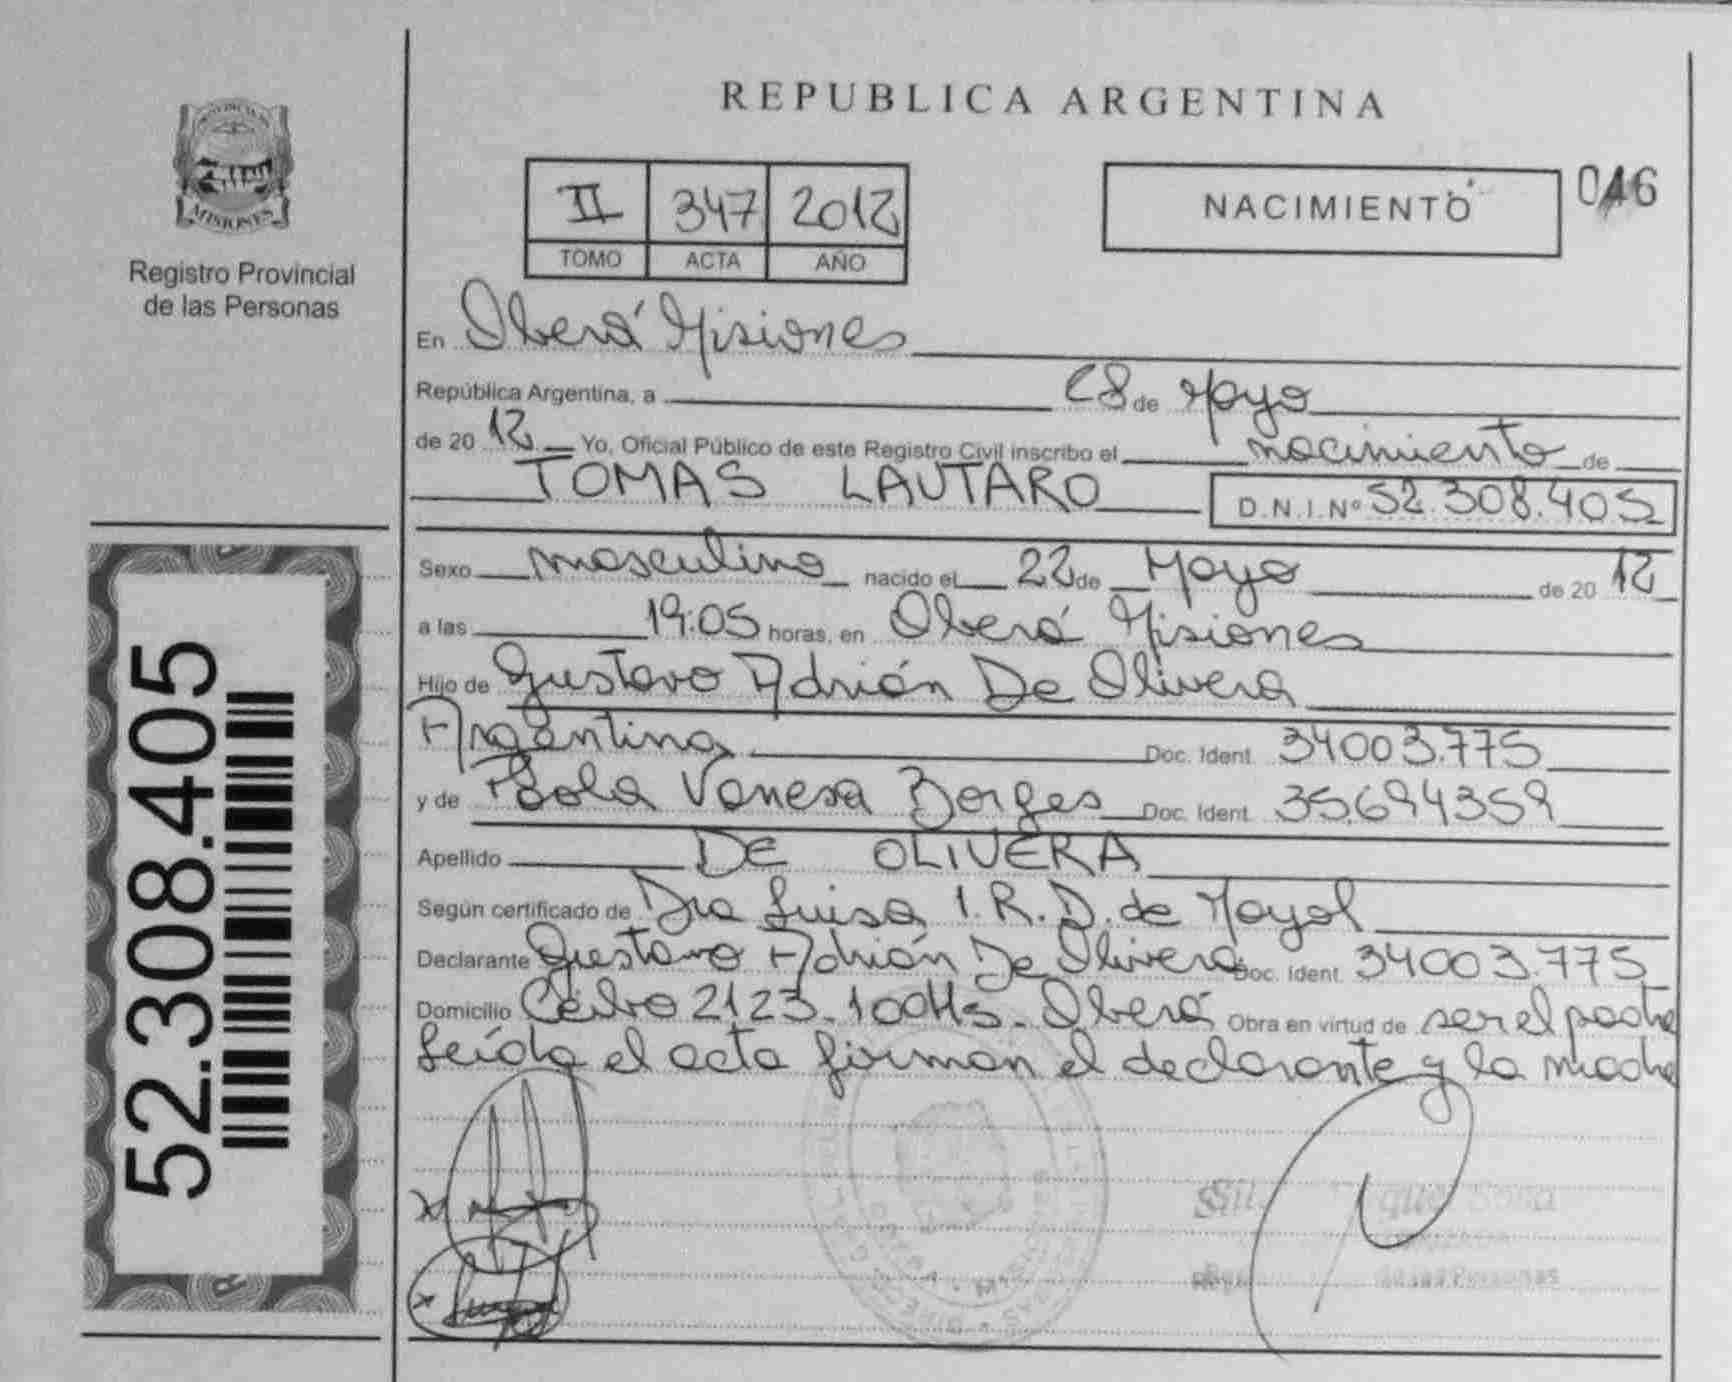 REPUBLICA ARGENTINA
MISIONES
Registro Provincial
de las Personas
II 347 2012
TOMO ACTA AÑO
NACIMIENTO 046
En Oberá Misiones
República Argentina, a 28 de Mayo
de 20 12 Yo, Oficial Público de este Registro Civil inscribo el nacimiento de
TOMAS LAUTARO D.N.I. Nº 52.308.405
Sexo masculino nacido el 22 de Mayo de 20 12
a las 19:05 horas, en Oberá Misiones
Hijo de Gustavo Adrián De Olivera
Argentina Doc. Ident. 34003.775
y de Paola Vanesa Borges Doc. Ident. 35.694359
Apellido DE OLIVERA
Según certificado de Dra Luisa I. R. D. de Mayol
Declarante Gustavo Adrián De Olivera Doc. Ident. 34003.775
Domicilio Ceibo 2123 - 100Hs - Oberá Obra en virtud de ser el padre
Leída el acta firman el declarante y la madre
52.308.405